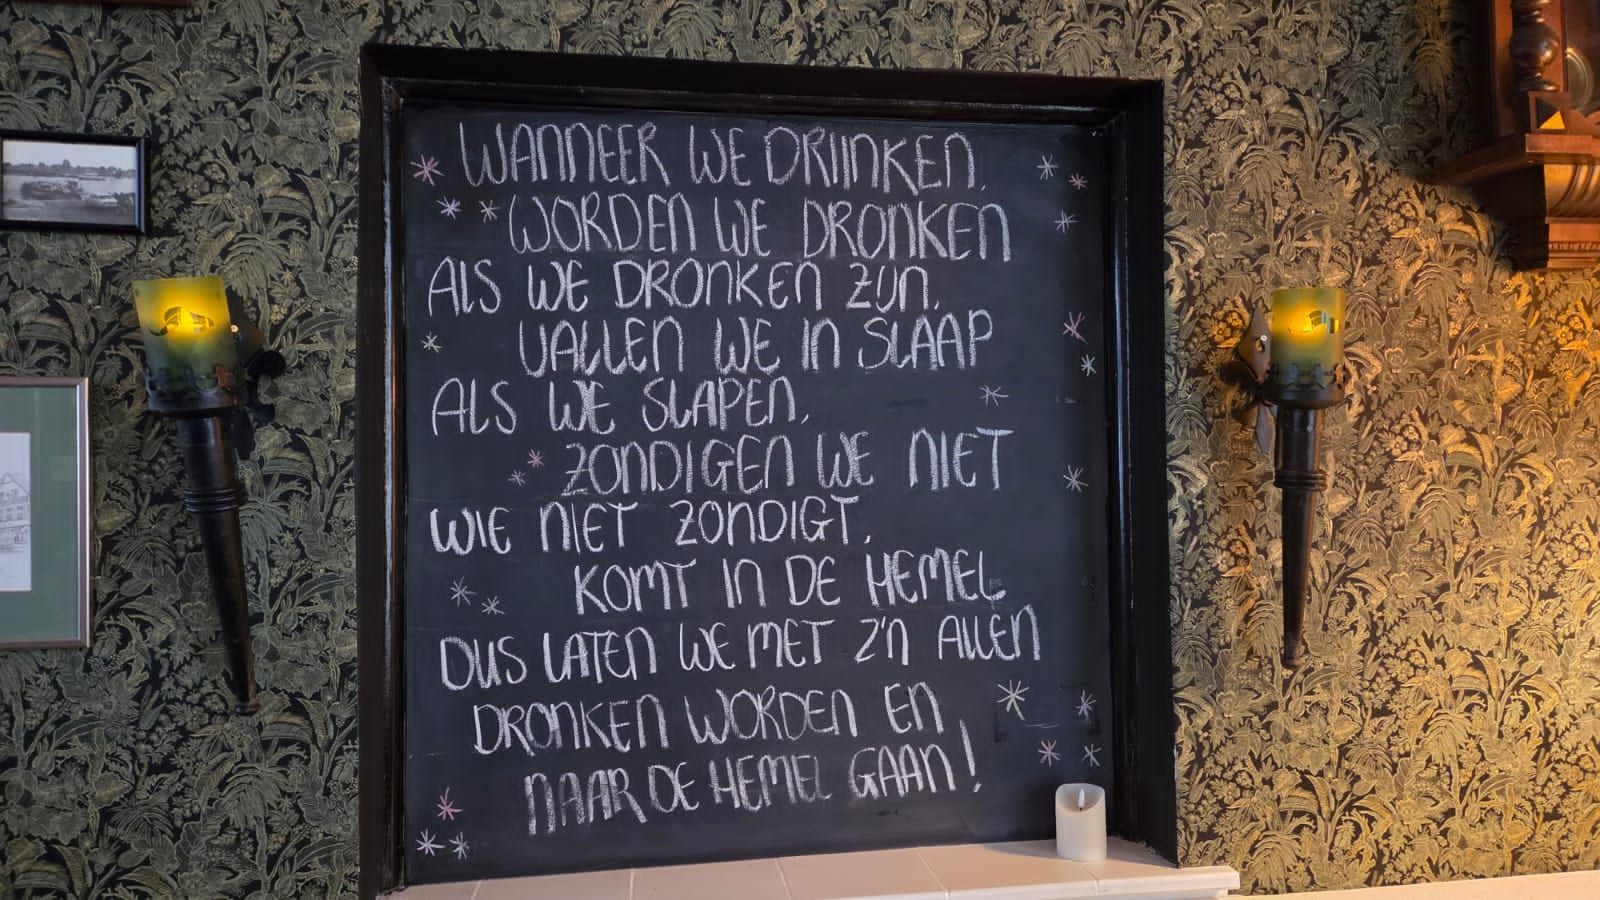 WANNEER WE DRINKEN,
WORDEN WE DRONKEN
ALS WE DRONKEN ZIJN,
VALLEN WE IN SLAAP
ALS WE SLAPEN,
ZONDIGEN WE NIET
WIE NIET ZONDIGT,
KOMT IN DE HEMEL
DUS LATEN WE MET Z'N ALLEN
DRONKEN WORDEN EN
NAAR DE HEMEL GAAN!